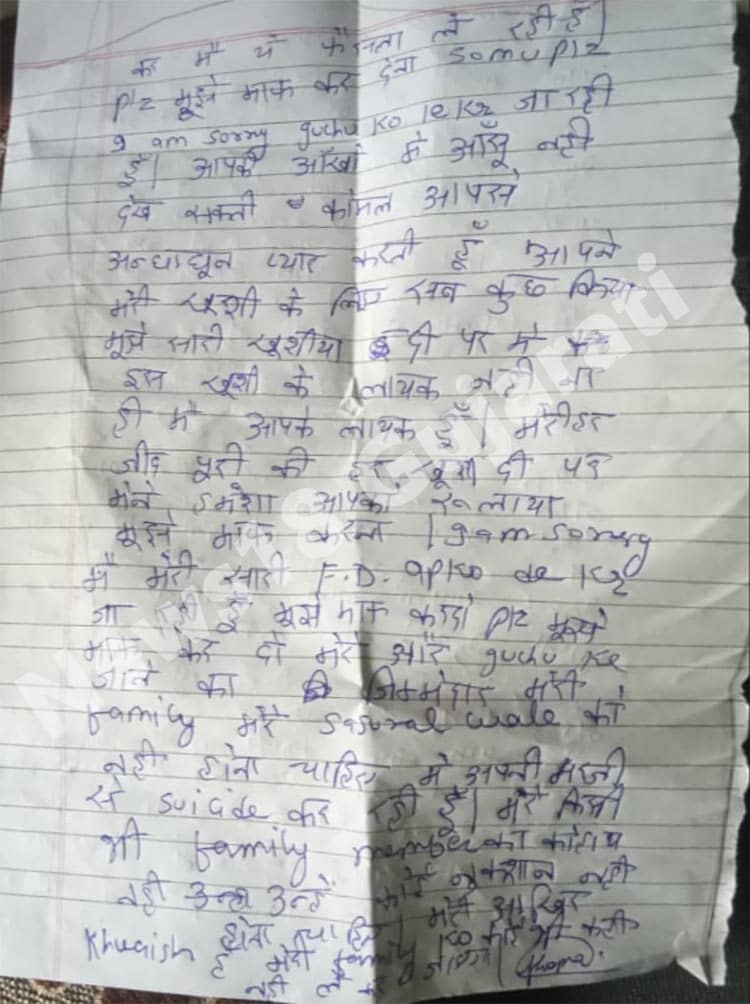 कर मैं ये फैसला ले रही हूँ|
Plz मुझे माफ कर देना Somu Plz
I am sorry guchu ko leke जा रही
हूँ| आपकी आँखो मे आँसू नही
देख सकती कोमल आपसे
अन्धाधून प्यार करती हूँ आपने
मेरी खुशी के लिए सब कुछ किया
मूझे सारी खूशीया दी पर मे
इस खूशी के लायक नही ना
ही मैं आपके लायक हूँ| मेरी हर
जीद पूरी की हर खूशी दी पर
मेने हमेशा आपको रूलाया
मूझे माफ करना | I am sorry
मैं मेरी सारी F.D. apko de
जा रही हूँ मूझे माफ करदो Plz मूझे
माफ कर दो मेरे और guchu ke
जाने का जिम्मेदार मेरी
family मेरे sasural wale को
नही होना चाहिए मे अपनी मर्जी
से suicide कर रही हूँ| मेरे किसी
भी family member का
नही उन्हे कोई नुकशान नही
होना चाहिए| मेरी आखिर
Khwaish है मेरी family ko कोई भी
नही
News18 Gujarati